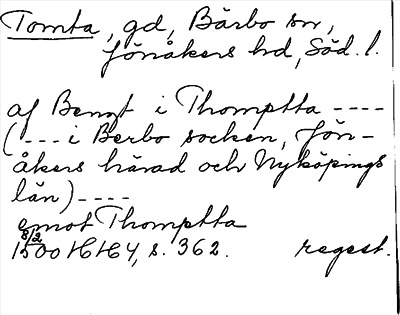 Tomta, gd, Bärbo sn,
Jönåkers hd, Söd. l.
af Bengt i Thomptta ----
(--- i Berbo socken, Jön-
åkers härad och Nyköpings
län) ----
emot Thomptta
8/2
1500 HH 4, s. 362. regest.